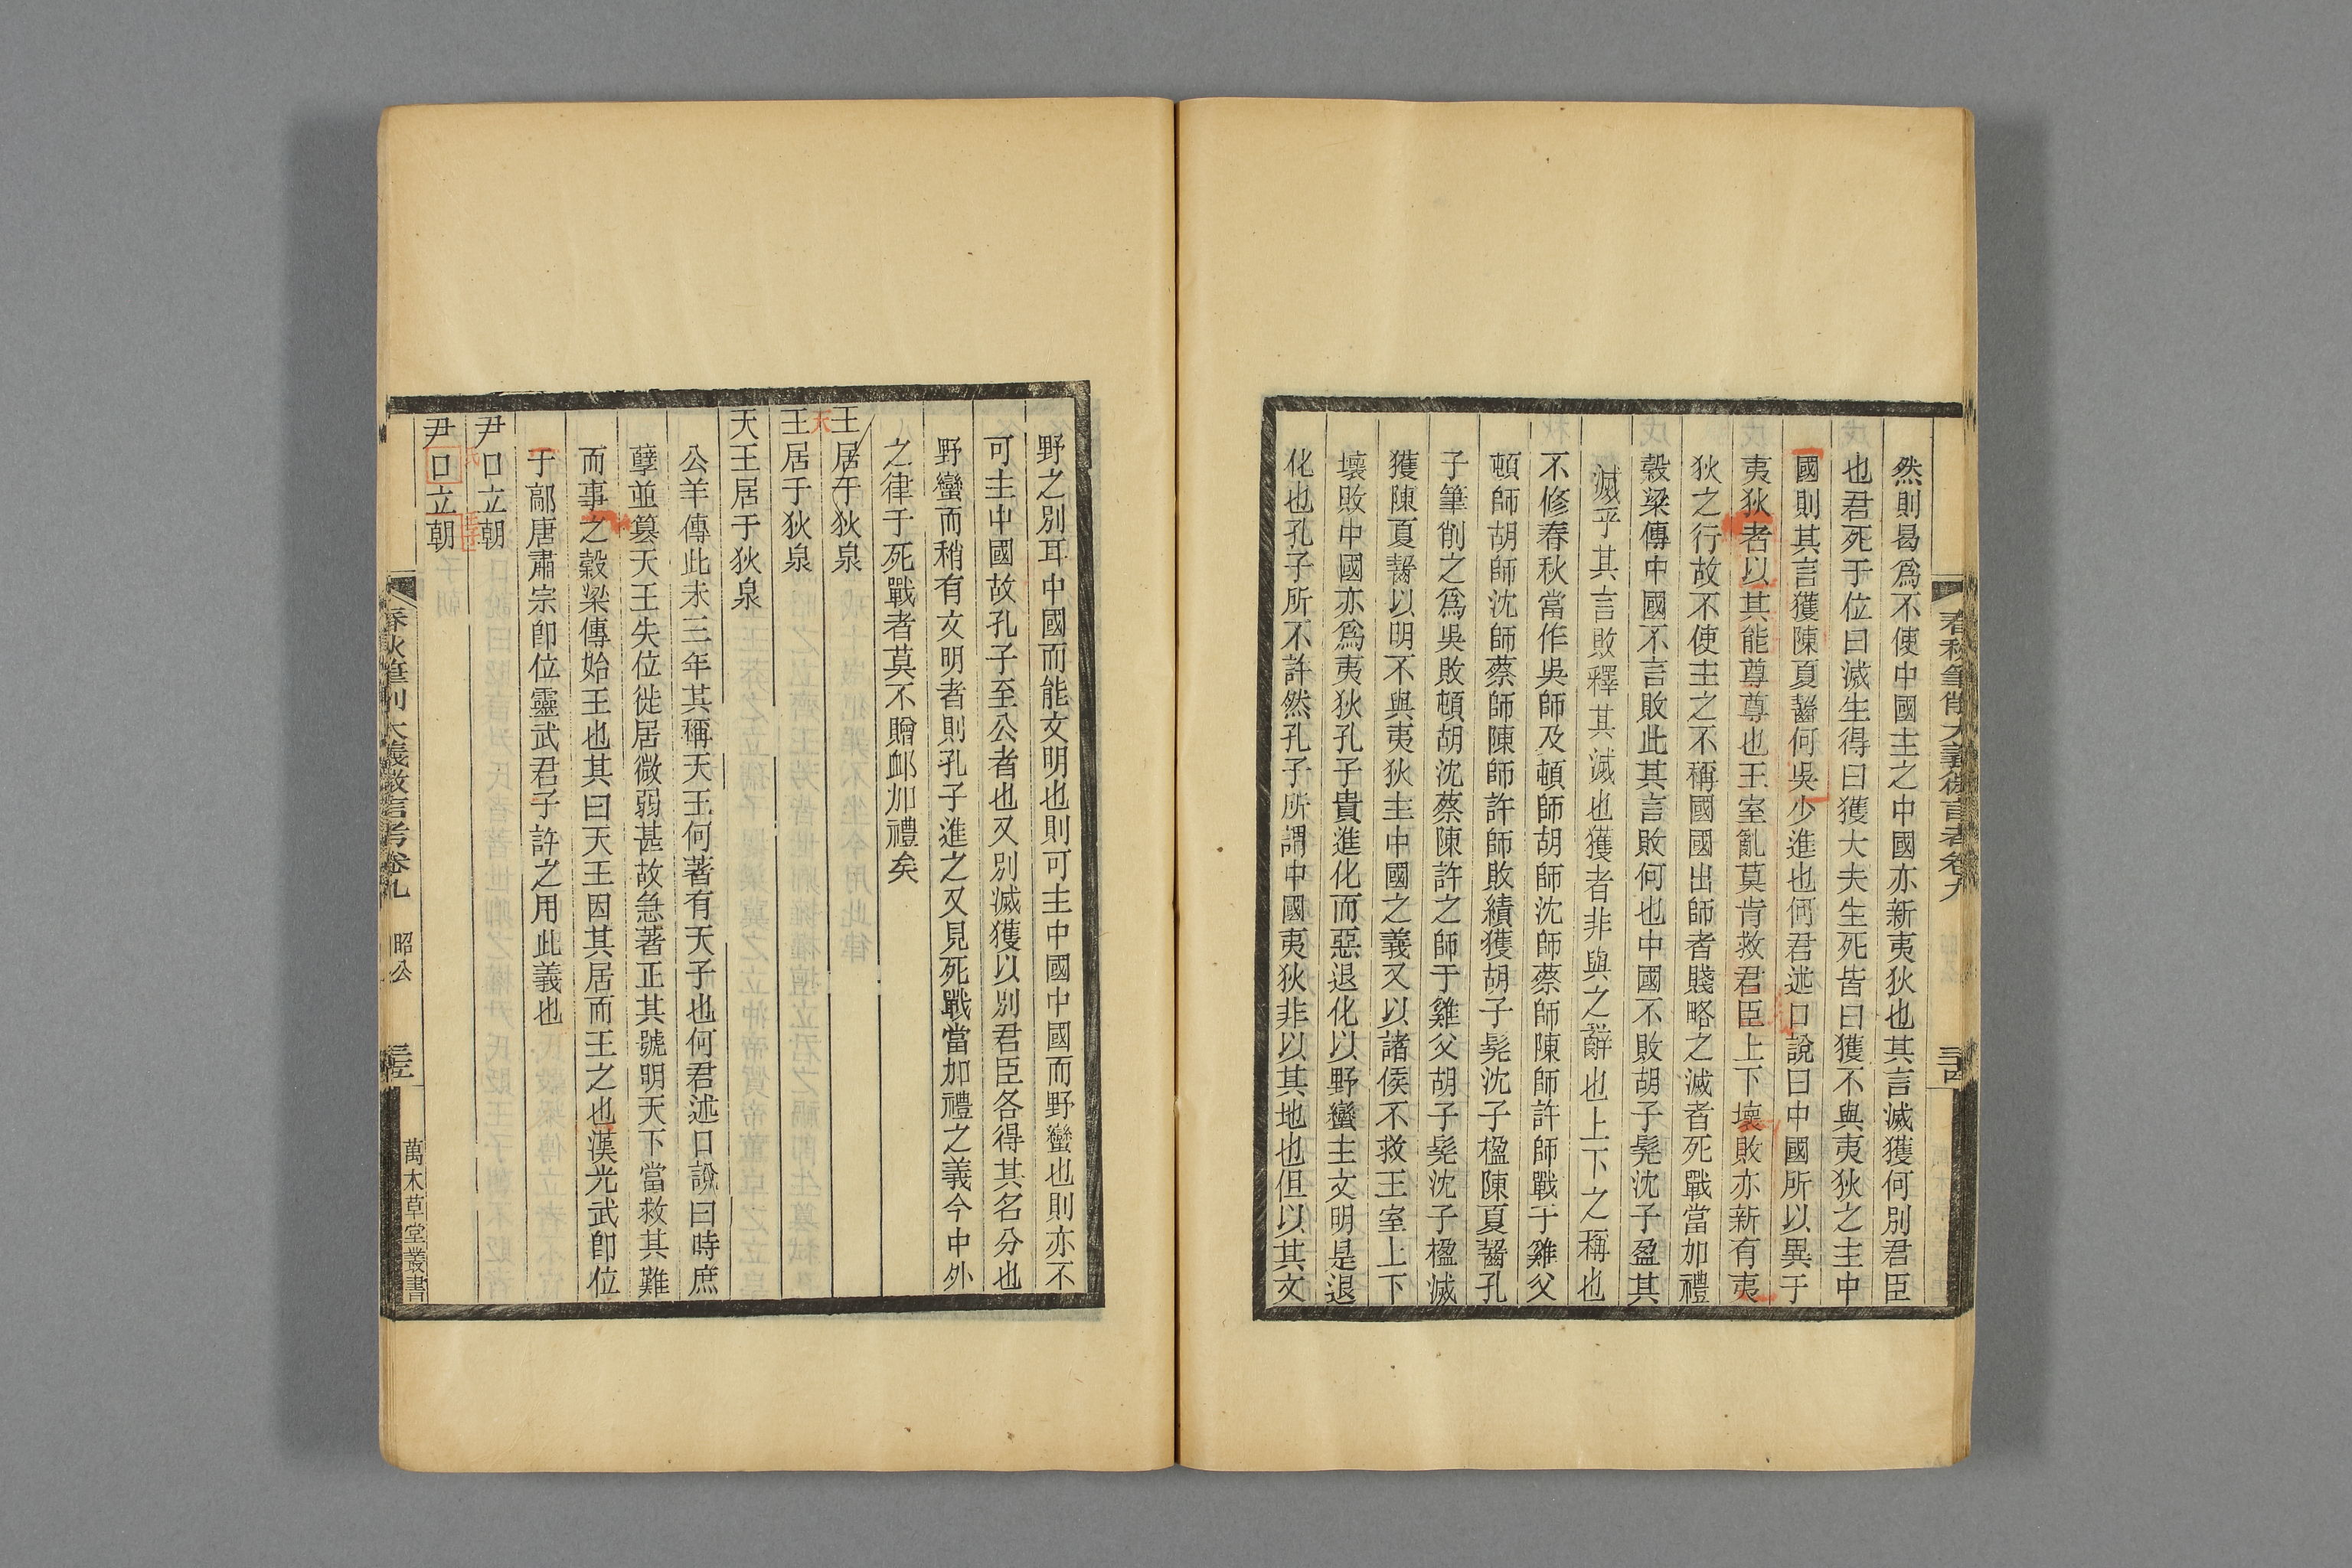 春秋筆削大義微言考卷九
三十四
然則曷爲不使中國主之中國亦新夷狄也其言滅獲何別君臣
也君死于位曰滅生得曰獲大夫生死皆曰獲不與夷狄之主中
國則其言獲陳夏齧何吳少進也何君述口說曰中國所以異于
夷狄者以其能尊尊也王室亂莫肯救君臣上下壞敗亦新有夷
狄之行故不使主之不稱國國出師者賤略之滅者死戰當加禮
穀梁傳中國不言敗此其言敗何也中國不敗胡子髡沈子盈其
滅乎其言敗釋其滅也獲者非與之辭也上下之稱也
不修春秋當作吳師及頓師胡師沈師蔡師陳師許師戰于雞父
頓師胡師沈師蔡師陳師許師敗績獲胡子髡沈子楹陳夏齧孔
子筆削之爲吳敗頓胡沈蔡陳許之師于雞父胡子髡沈子楹滅
獲陳夏齧以明不與夷狄主中國之義又以諸侯不救王室上下
壞敗中國亦爲夷狄孔子貴進化而惡退化以野蠻主文明是退
化也孔子所不許然孔子所謂中國夷狄非以其地也但以其文
野之別耳中國而能文明也則可主中國中國而野蠻也則亦不
可主中國故孔子至公者也又別滅獲以別君臣各得其名分也
野蠻而稍有文明者則孔子進之又見死戰當加禮之義今中外
之律于死戰者莫不贈卹加禮矣
王居于狄泉
天
王居于狄泉
天王居于狄泉
公羊傳此未三年其稱天王何著有天子也何君述口說曰時庶
孽並篡天王失位徙居微弱甚故急著正其號明天下當救其難
而事之穀梁傳始王也其曰天王因其居而王之也漢光武卽位
于鄗唐肅宗卽位靈武君子許之用此義也
尹口立朝
氏
王子
尹口立朝
春秋筆削大義微言考卷九 昭公
三十五
萬木草堂叢書